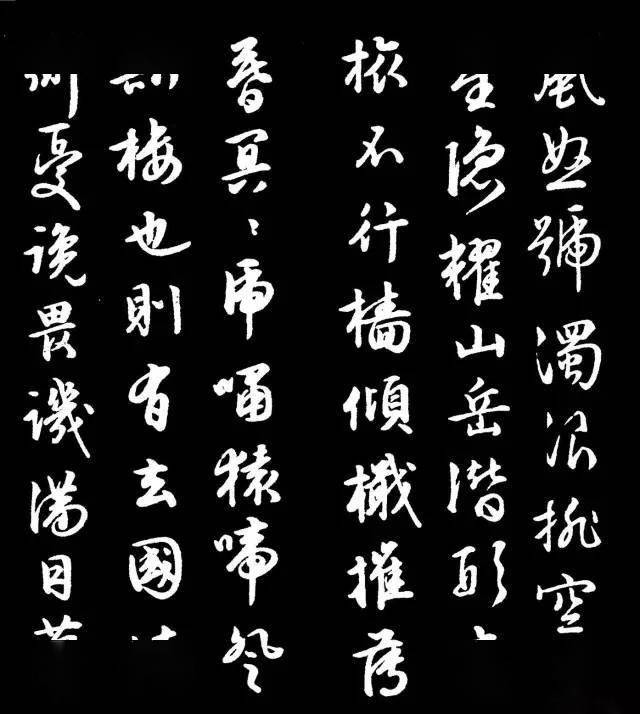 風怒號濁浪排空
星隱耀山岳潛形
旅不行檣傾檝摧薄
暮冥〻虎嘯猿啼登
樓也則有去國
憂讒畏譏滿目